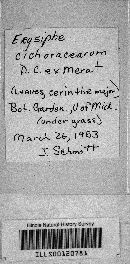 Erysiphe
cichoracearum
D.C. ex Merat
(Leaves, cerinthe major)
Bot. Garden, U of Mich.
(under glass)
March 26, 1953
J. Schmitt
Illinois Natural History Survey
ILLS00120781